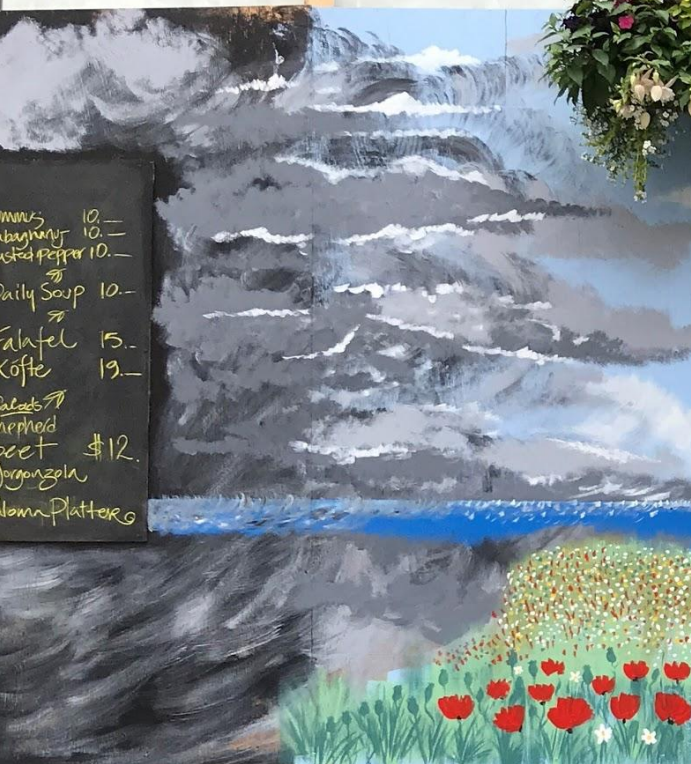 mmus 10.—
abaghanuj 10.—
asted Pepper 10.—
Daily Soup 10.—
Falafel 15.—
Köfte 19.—
Salads
hepherd
beet $12.
gorgonzola
aloma Platter